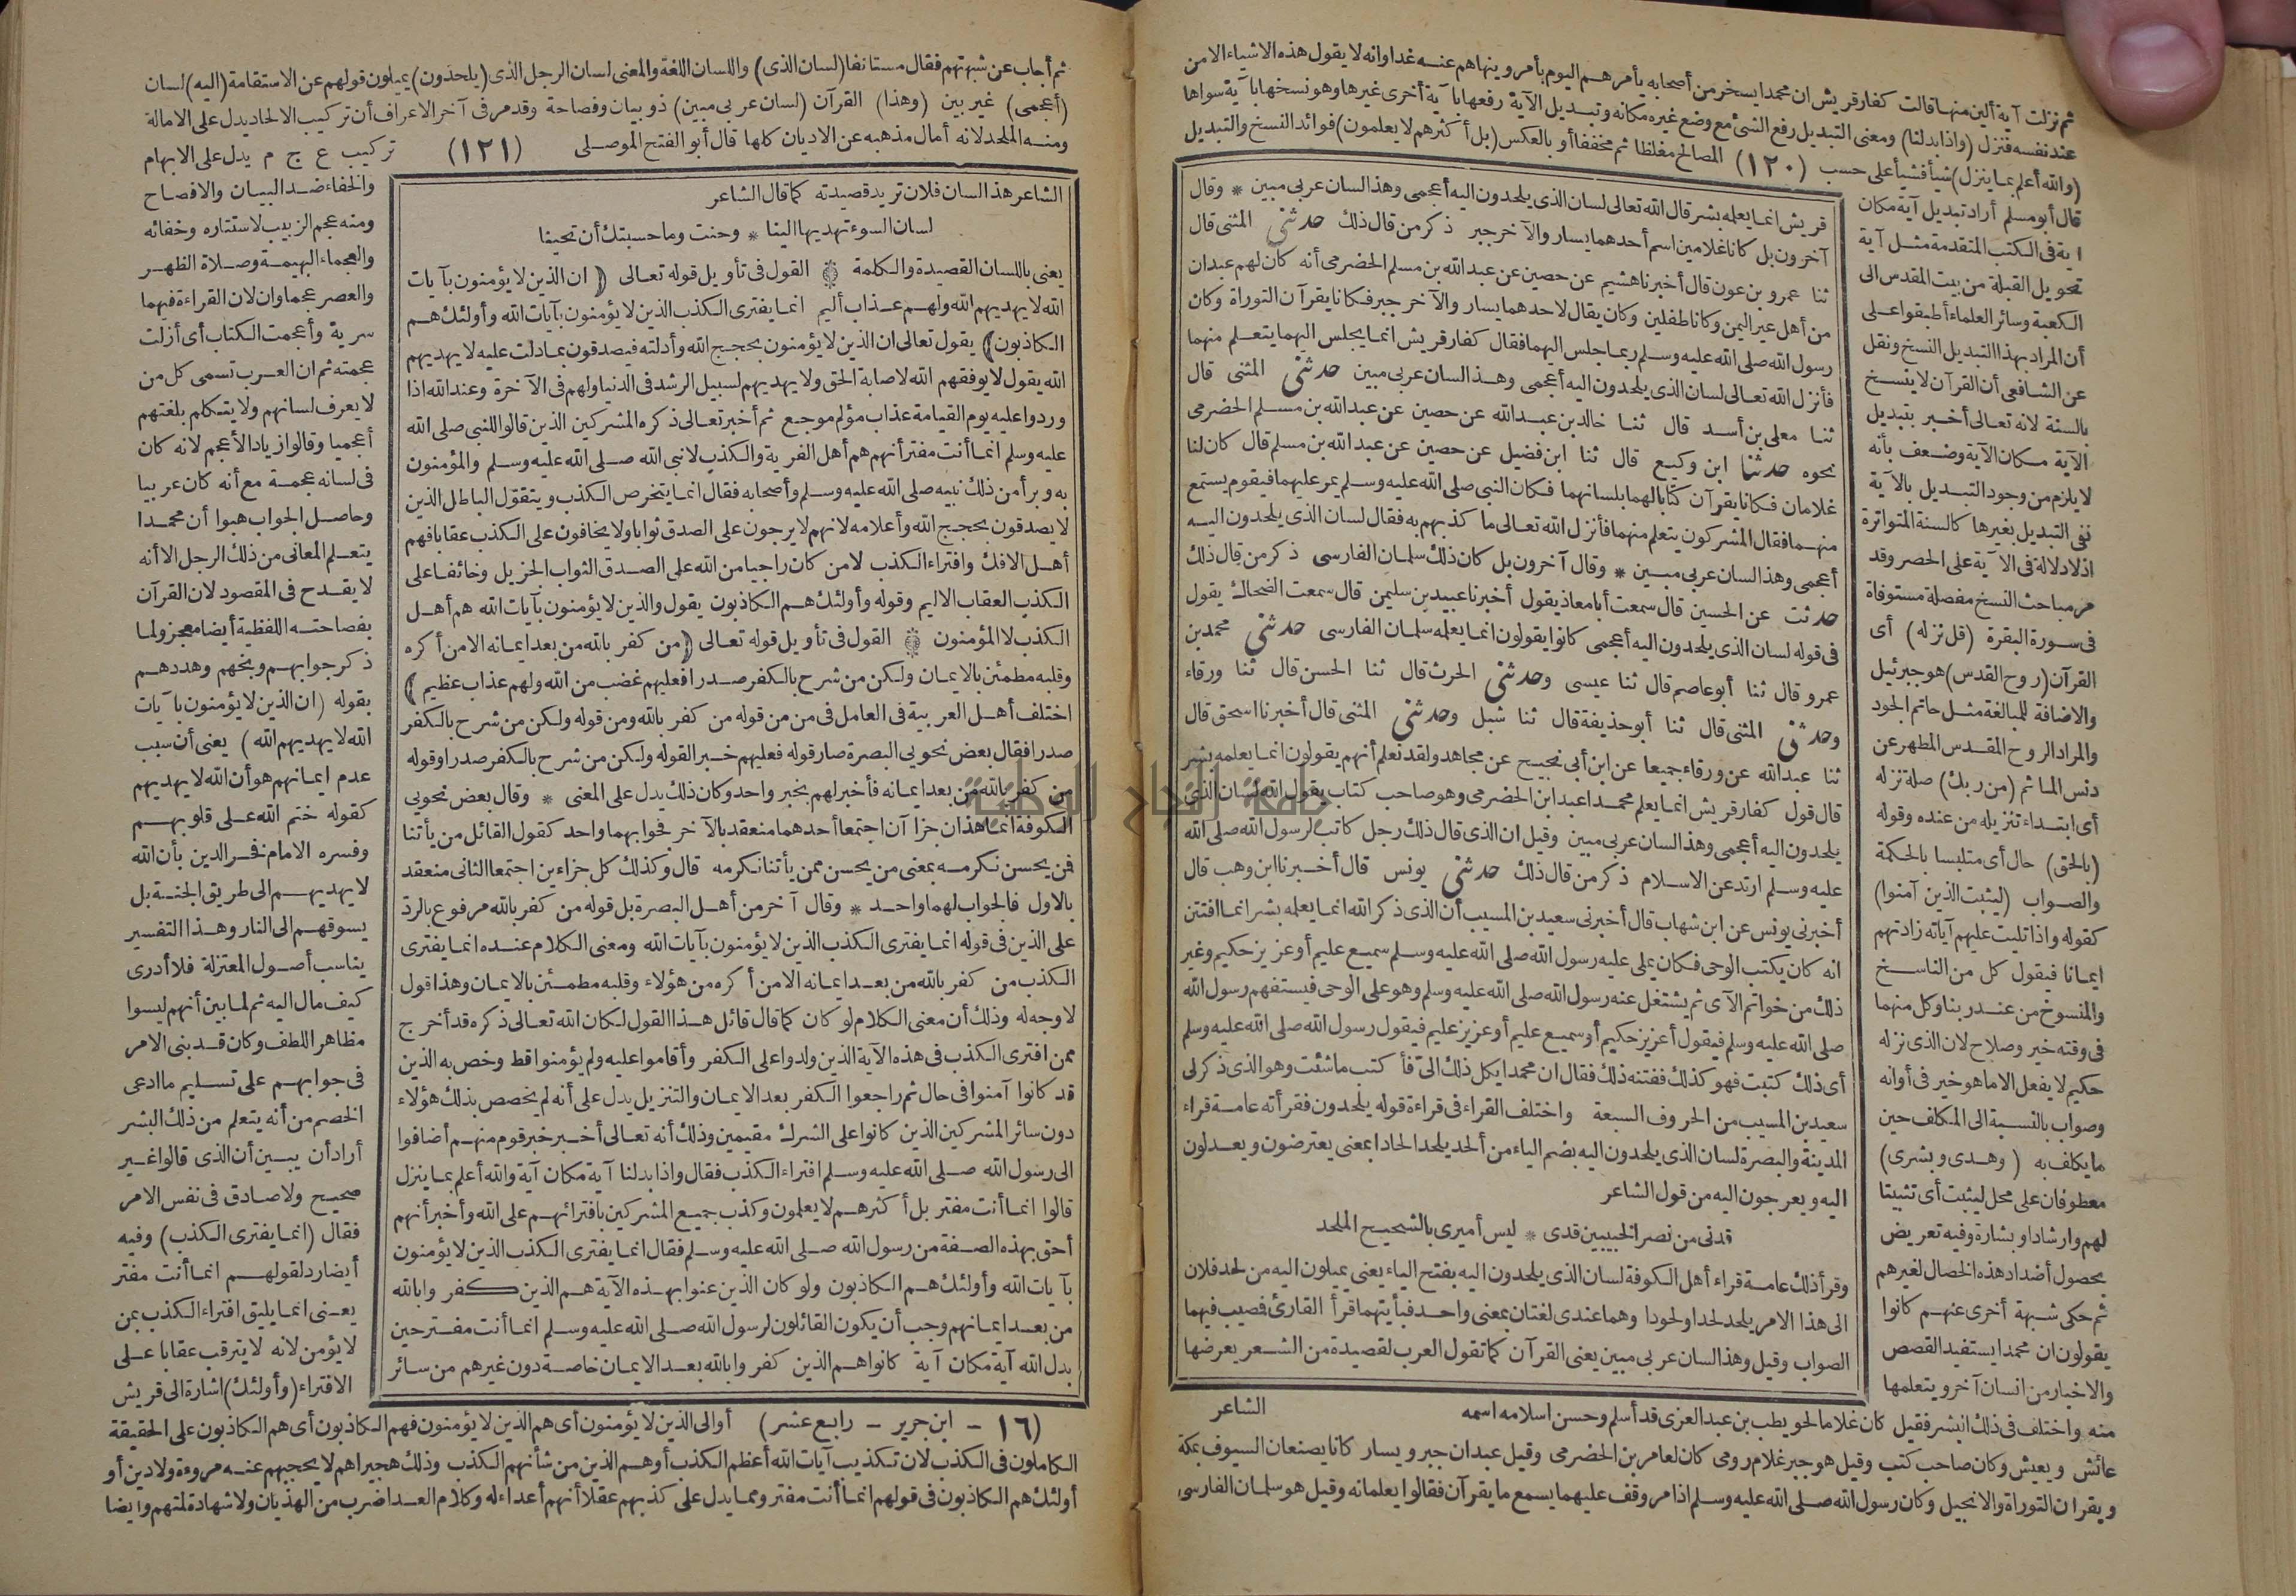 ثم نزلت آية ألين منها قالت كفار قريش ان محمدا يسخر من أصحابه يأمرهم اليوم بأمر وينهاهم عنه غدا وانه لا يقول هذه الاشياء الا من
عند نفسه فنزل (واذا بدلنا) ومعنى التبديل رفع الشئ مع وضع غيره مكانه وتبديل الآية رفعها بآية أخرى غيرها وهو نسخها بآية سواها
(والله أعلم بما ينزل) شيأ فشيأ على حسب (١٢٠) المصالح مغلظا ثم مخففا أو بالعكس (بل أكثرهم لا يعلمون) فوائد النسخ والتبديل
قال أبو مسلم أراد تبديل آية مكان
اية فى الكتب المتقدمة مثل آية
تحويل القبلة من بيت المقدس الى
الكعبة وسائر العلماء أطبقوا على
أن المراد بهذا التبديل النسخ ونقل
عن الشافعى أن القرآن لا ينسخ
بالسنة لانه تعالى أخبر بتبديل
الآية مكان الآية وضعف بأنه
لا يلزم من وجود التبديل بالآية
نفى التبديل بغيرها كالسنة المتواترة
اذ لا دلالة فى الآية على الحصر وقد
مر مباحث النسخ مفصلة مستوفاة
فى سورة البقرة (قل نزله) أى
القرآن (روح القدس) هو جبرئيل
والاضافة للمبالغة مثل حاتم الجود
والمراد الروح المقدس المطهر عن
دنس المآثم (من ربك) صلة نزله
أى ابتداء تنزيله من عنده وقوله
(بالحق) حال أى متلبسا بالحكمة
والصواب (ليثبت الذين آمنوا)
كقوله واذا تليت عليهم آياته زادتهم
ايمانا فيقول كل من الناسخ
والمنسوخ من عند ربنا وكل منهما
فى وقته خير وصلاح لان الذى نزله
حكيم لا يفعل الا ما هو خير فى أوانه
وصواب بالنسبة الى المكلف حين
ما يكلف به (وهدى وبشرى)
معطوفان على محل ليثبت أى تثبيتا
لهم وارشادا وبشارة وفيه تعريض
بحصول أضداد هذه الخصال لغيرهم
ثم حكى شبهة أخرى عنهم كانوا
يقولون ان محمدا يستفيد القصص
والاخبار من انسان آخر ويتعلمها
قريش انما يعلمه بشر قال الله تعالى لسان الذى يلحدون اليه أعجمى وهذا لسان عربى مبين * وقال
آخرون بل كانا غلامين اسم أحدهما يسار والآخر جبر ذكر من قال ذلك حدثنى المثنى قال
ثنا عمرو بن عون قال أخبرنا هشيم عن حصين عن عبد الله بن مسلم الحضرمى أنه كان لهم عبدان
من أهل عير اليمن وكانا طفلين وكان يقال لاحدهما يسار والآخر جبر فكانا يقرآن التوراة وكان
رسول الله صلى الله عليه وسلم ربما جلس اليهما فقال كفار قريش انما يجلس اليهما يتعلم منهما
فأنزل الله تعالى لسان الذى يلحدون اليه أعجمى وهذا لسان عربى مبين حدثنى المثنى قال
ثنا معلى بن أسد قال ثنا خالد بن عبد الله عن حصين عن عبد الله بن مسلم الحضرمى
نحوه حدثنا ابن وكيع قال ثنا ابن فضيل عن حصين عن عبد الله بن مسلم قال كان لنا
غلامان فكانا يقرآن كتابا لهما بلسانهما فكان النبى صلى الله عليه وسلم يمر عليهما فيقوم يستمع
منهما فقال المشركون يتعلم منهما فأنزل الله تعالى ما كذبهم به فقال لسان الذى يلحدون اليه
أعجمى وهذا لسان عربى مبين * وقال آخرون بل كان ذلك سلمان الفارسى ذكر من قال ذلك
حدثت عن الحسين قال سمعت أبا معاذ يقول أخبرنا عبيد بن سليمن قال سمعت الضحاك يقول
فى قوله لسان الذى يلحدون اليه أعجمى كانوا يقولون انما يعلمه سلمان الفارسى حدثنى محمد بن
عمرو قال ثنا أبو عاصم قال ثنا عيسى وحدثنى الحرث قال ثنا الحسن قال ثنا ورقاء
وحدثنى المثنى قال ثنا أبو حذيفة قال ثنا شبل وحدثنى المثنى قال أخبرنا اسحق قال
ثنا عبد الله عن ورقاء جميعا عن ابن أبى نجيح عن مجاهد ولقد نعلم أنهم يقولون انما يعلمه بشر
قال قول كفار قريش انما يعلم محمدا عبد ابن الحضرمى وهو صاحب كتاب يقول الله لسان الذى
يلحدون اليه أعجمى وهذا لسان عربى مبين وقيل ان الذى قال ذلك رجل كاتب لرسول الله صلى الله
عليه وسلم ارتد عن الاسلام ذكر من قال ذلك حدثنى يونس قال أخبرنا ابن وهب قال
أخبرنى يونس عن ابن شهاب قال أخبرنى سعيد بن المسيب أن الذى ذكر الله انما يعلمه بشر انما افتتن
انه كان يكتب الوحى فكان يملى عليه رسول الله صلى الله عليه وسلم سميع عليم أو عزيز حكيم وغير
ذلك من خواتم الآى ثم يشتغل عنه رسول الله صلى الله عليه وسلم وهو على الوحى فيستفهم رسول الله
صلى الله عليه وسلم فيقول أعزيز حكيم أو سميع عليم أو عزيز عليم فيقول رسول الله صلى الله عليه وسلم
أى ذلك كتبت فهو كذلك ففتنه ذلك فقال ان محمدا يكل ذلك الىّ فأكتب ما شئت وهو الذى ذكر لى
سعيد بن المسيب من الحروف السبعة واختلف القراء فى قراءة قوله يلحدون فقرأته عامة قراء
المدينة والبصرة لسان الذى يلحدون اليه بضم الياء من ألحد يلحد الحادا بمعنى يعترضون ويعدلون
اليه ويعرجون اليه من قول الشاعر
قدنى من نصر الخبيبين قدى * ليس أميرى بالشحيح الملحد
وقرأ ذلك عامة قراء أهل الكوفة لسان الذى يلحدون اليه بفتح الياء يعنى يميلون اليه من لحد فلان
الى هذا الامر يلحد لحدا ولحودا وهما عندى لغتان بمعنى واحد فبأيتهما قرأ القارئ فمصيب فيهما
الصواب وقيل وهذا لسان عربى مبين يعنى القرآن كما تقول العرب لقصيدة من الشعر يعرضها
الشاعر
منه واختلف فى ذلك البشر فقيل كان غلاما لحويطب بن عبد العزى قد أسلم وحسن اسلامه اسمه
عائش ويعيش وكان صاحب كتب وقيل هو جبر غلام رومى كان لعامر بن الحضرمى وقيل عبدان جبر ويسار كانا يصنعان السيوف بمكة
ويقرآن التوراة والانجيل وكان رسول الله صلى الله عليه وسلم اذا مر وقف عليهما يسمع ما يقرآن فقالوا يعلمانه وقيل هو سلمان الفارسى
ثم أجاب عن شبهتهم فقال مستأنفا (لسان الذى) واللسان اللغة والمعنى لسان الرجل الذى (يلحدون) يميلون قولهم عن الاستقامة (اليه) لسان
(أعجمى) غير بين (وهذا) القرآن (لسان عربى مبين) ذو بيان وفصاحة وقد مر فى آخر الاعراف أن تركيب الالحاد يدل على الامالة
ومنه الملحد لانه أمال مذهبه عن الاديان كلها قال أبو الفتح الموصلى (١٢١) تركيب ع ج م يدل على الابهام
والخفاء ضد البيان والافصاح
ومنه عجم الزبيب لاستتاره وخفائه
والعجماء البهيمة وصلاة الظهر
والعصر عجماوان لان القراءة فيهما
سرية وأعجمت الكتاب أى أزلت
عجمته ثم ان العرب تسمى كل من
لا يعرف لسانهم ولا يتكلم بلغتهم
أعجميا وقالوا زياد الأعجم لانه كان
فى لسانه عجمة مع أنه كان عربيا
وحاصل الجواب هبوا أن محمدا
يتعلم المعانى من ذلك الرجل الا أنه
لا يقدح فى المقصود لان القرآن
بفصاحته اللفظية أيضا معجز ولما
ذكر جوابهم وبخهم وهددهم
بقوله (ان الذين لا يؤمنون بآيات
الله لا يهديهم الله) يعنى أن سبب
عدم ايمانهم هو أن الله لا يهديهم
كقوله ختم الله على قلوبهم
وفسره الامام فخر الدين بأن الله
لا يهديهم الى طريق الجنة بل
يسوقهم الى النار وهذا التفسير
يناسب أصول المعتزلة فلا أدرى
كيف مال اليه ثم لما بين أنهم ليسوا
مظاهر اللطف وكان قد بنى الامر
فى جوابهم على تسليم ما ادعى
الخصم من أنه يتعلم من ذلك البشر
أراد أن يبين أن الذى قالوا غير
صحيح ولا صادق فى نفس الامر
فقال (انما يفترى الكذب) وفيه
أيضا رد لقولهم انما أنت مفتر
يعنى انما يليق افتراء الكذب بمن
لا يؤمن لانه لا يترقب عقابا على
الافتراء (وأولئك) اشارة الى قريش
الشاعر هذا لسان فلان تريد قصيدته كما قال الشاعر
لسان السوء تهديها الينا * وحنت وما حسبتك أن تحينا
يعنى باللسان القصيدة والكلمة ۞ القول فى تأويل قوله تعالى ﴿ان الذين لا يؤمنون بآيات
الله لا يهديهم الله ولهم عذاب أليم انما يفترى الكذب الذين لا يؤمنون بآيات الله وأولئك هم
الكاذبون﴾ يقول تعالى ان الذين لا يؤمنون بحجج الله وأدلته فيصدقون بما دلت عليه لا يهديهم
الله يقول لا يوفقهم الله لاصابة الحق ولا يهديهم لسبيل الرشد فى الدنيا ولهم فى الآخرة وعند الله اذا
وردوا عليه يوم القيامة عذاب مؤلم موجع ثم أخبر تعالى ذكره المشركين الذين قالوا للنبى صلى الله
عليه وسلم انما أنت مفتر أنهم هم أهل الفرية والكذب لا نبى الله صلى الله عليه وسلم والمؤمنون
به وبرأ من ذلك نبيه صلى الله عليه وسلم وأصحابه فقال انما يتخرص الكذب ويتقول الباطل الذين
لا يصدقون بحجج الله وأعلامه لانهم لا يرجون على الصدق ثوابا ولا يخافون على الكذب عقابا فهم
أهل الافك وافتراء الكذب لا من كان راجيا من الله على الصدق الثواب الجزيل وخائفا على
الكذب العقاب الاليم وقوله وأولئك هم الكاذبون يقول والذين لا يؤمنون بآيات الله هم أهل
الكذب لا المؤمنون ۞ القول فى تأويل قوله تعالى ﴿من كفر بالله من بعد ايمانه الا من أكره
وقلبه مطمئن بالايمان ولكن من شرح بالكفر صدرا فعليهم غضب من الله ولهم عذاب عظيم﴾
اختلف أهل العربية فى العامل فى من من قوله من كفر بالله ومن قوله ولكن من شرح بالكفر
صدرا فقال بعض نحويى البصرة صار قوله فعليهم خبرا لقوله ولكن من شرح بالكفر صدرا وقوله
من كفر بالله من بعد ايمانه فأخبر لهم بخبر واحد وكان ذلك يدل على المعنى * وقال بعض نحويى
الكوفة انما هذان جزاآن اجتمعا أحدهما منعقد بالآخر فجوابهما واحد كقول القائل من يأتنا
فمن يحسن نكرمه بمعنى من يحسن ممن يأتنا نكرمه قال وكذلك كل جزاءين اجتمعا الثانى منعقد
بالاول فالجواب لهما واحد * وقال آخر من أهل البصرة بل قوله من كفر بالله مرفوع بالرد
على الذين فى قوله انما يفترى الكذب الذين لا يؤمنون بآيات الله ومعنى الكلام عنده انما يفترى
الكذب من كفر بالله من بعد ايمانه الا من أكره من هؤلاء وقلبه مطمئن بالايمان وهذا قول
لا وجه له وذلك أن معنى الكلام لو كان كما قال قائل هذا القول لكان الله تعالى ذكره قد أخرج
ممن افترى الكذب فى هذه الآية الذين ولدوا على الكفر وأقاموا عليه ولم يؤمنوا قط وخص به الذين
قد كانوا آمنوا فى حال ثم راجعوا الكفر بعد الايمان والتنزيل يدل على أنه لم يخصص بذلك هؤلاء
دون سائر المشركين الذين كانوا على الشرك مقيمين وذلك أنه تعالى أخبر خبر قوم منهم أضافوا
الى رسول الله صلى الله عليه وسلم افتراء الكذب فقال واذا بدلنا آية مكان آية والله أعلم بما ينزل
قالوا انما أنت مفتر بل أكثرهم لا يعلمون وكذب جميع المشركين بافترائهم على الله وأخبر أنهم
أحق بهذه الصفة من رسول الله صلى الله عليه وسلم فقال انما يفترى الكذب الذين لا يؤمنون
بآيات الله وأولئك هم الكاذبون ولو كان الذين عنوا بهذه الآية هم الذين كفروا بالله
من بعد ايمانهم وجب أن يكون القائلون لرسول الله صلى الله عليه وسلم انما أنت مفتر حين
بدل الله آية مكان آية كانوا هم الذين كفروا بالله بعد الايمان خاصة دون غيرهم من سائر
(١٦ - ابن جرير - رابع عشر) أو الى الذين لا يؤمنون أى هم الذين لا يؤمنون فهم الكاذبون أى هم الكاذبون على الحقيقة
الكاملون فى الكذب لان تكذيب آيات الله أعظم الكذب أو هم الذين من شأنهم الكذب وذلك هجيراهم لا يحجبهم عنه مروءة ولا دين أو
أولئك هم الكاذبون فى قولهم انما أنت مفتر ومما يدل على كذبهم عقلا أنهم أعداء له وكلام العدا ضرب من الهذيان ولا شهادة لمتهم وأيضا
جامعة النجاح الوطنية